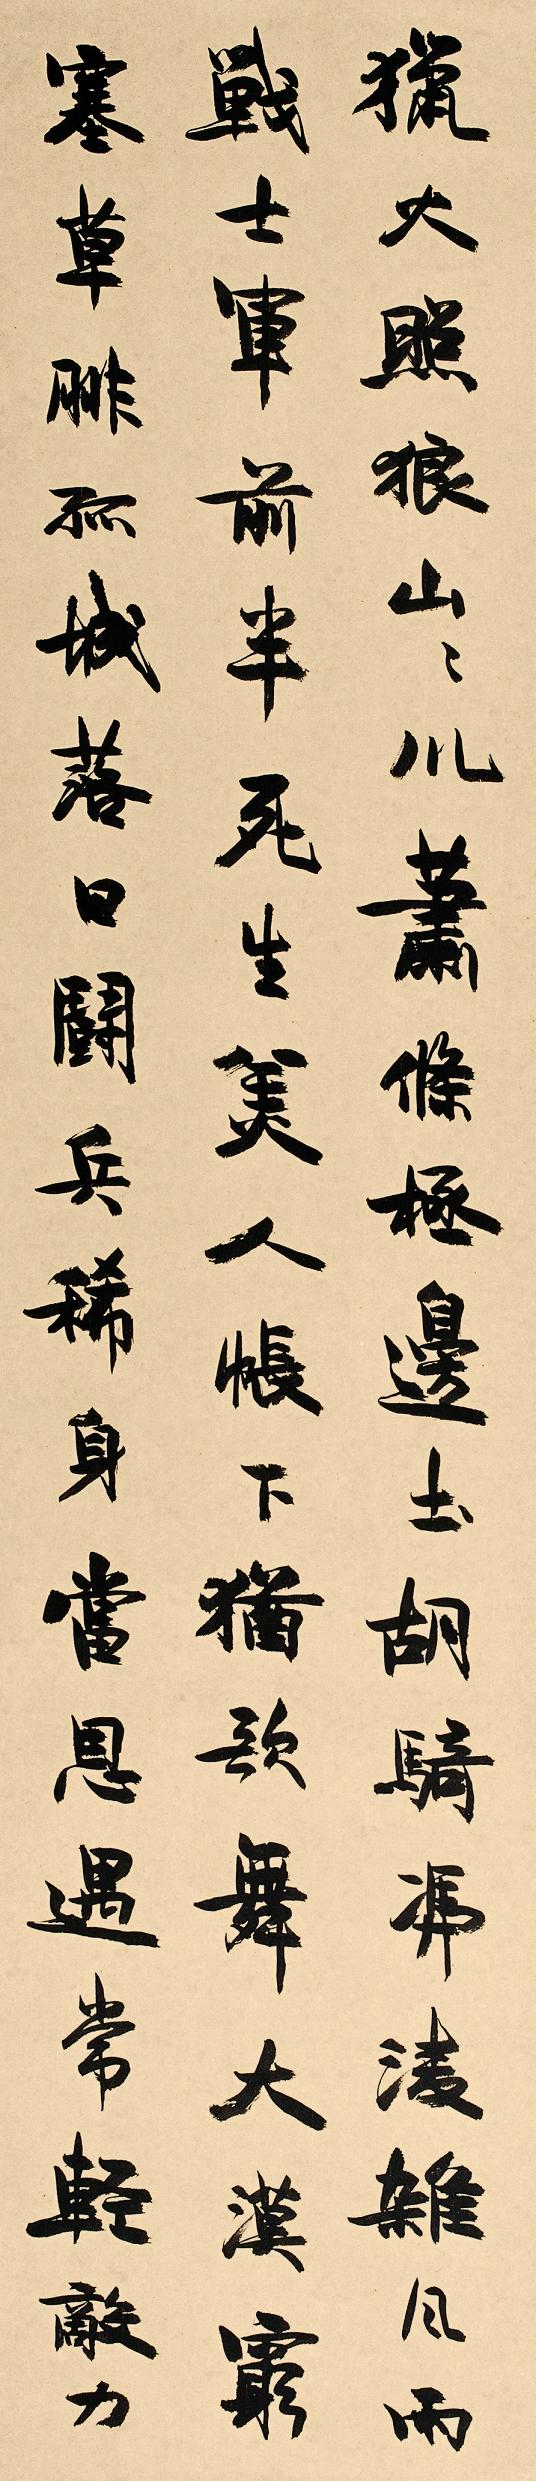 獵火照狼山〻川蕭條極邊土胡騎馮淩雜風雨
戰士軍前半死生美人帳下猶歌舞大漠窮
塞草腓孤城落日鬪兵稀身當恩遇常輕敵力